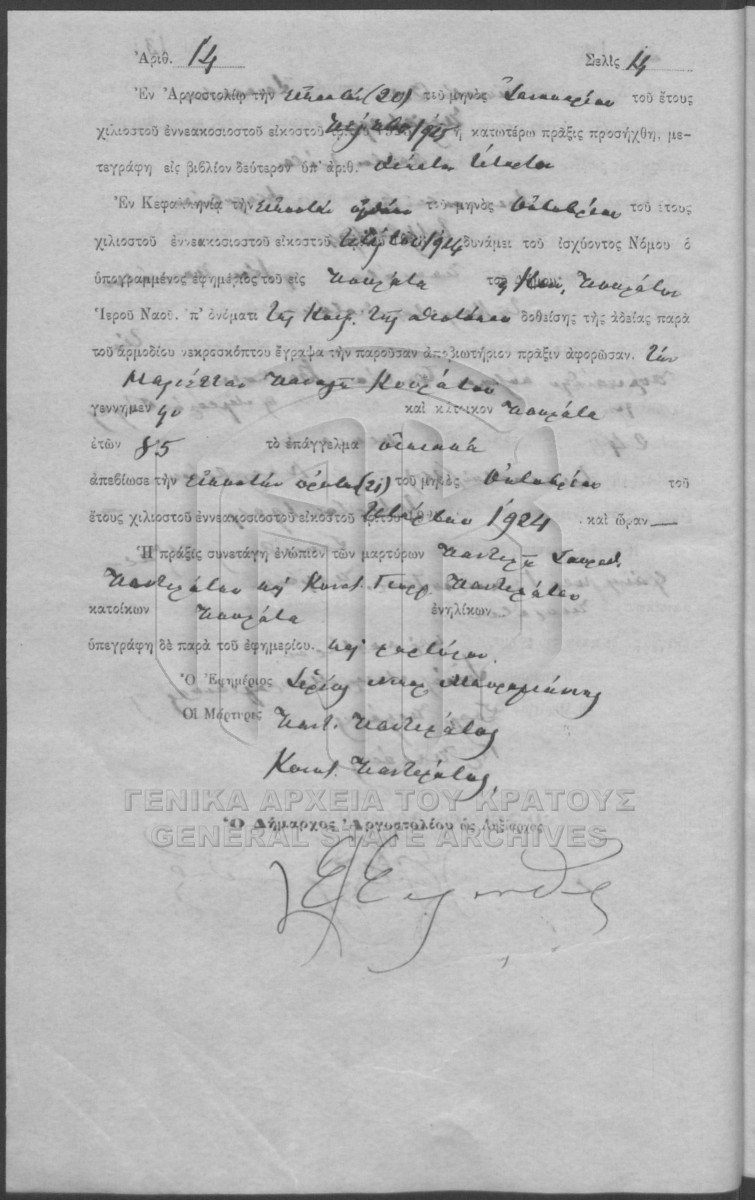 Ἀριθ. 14 Σελὶς 14
Ἐν Ἀργοστολίῳ τὴν εἰκοστὴν (20) τοῦ μηνὸς Ἰανουαρίου τοῦ ἔτους
χιλιοστοῦ ἐννεακοσιοστοῦ εἰκοστοῦ πέμπτου 1925 ἡ κατωτέρω πρᾶξις προσήχθη, με-
τεγράφη εἰς βιβλίον δεύτερον ὑπ' ἀριθ. δέκατον τέταρτον
Ἐν Κεφαλληνίᾳ τὴν εἰκοστὴν ὀγδόην τοῦ μηνὸς Ὀκτωβρίου τοῦ ἔτους
χιλιοστοῦ ἐννεακοσιοστοῦ εἰκοστοῦ τετάρτου 1924 δυνάμει τοῦ ἰσχύοντος Νόμου ὁ
ὑπογραμμένος ἐφημέριος τοῦ εἰς
Ἱεροῦ Ναοῦ, π' ὀνόματι τῆς Κοιμ. τῆς Θεοτόκου δοθείσης τῆς ἀδείας παρὰ
τοῦ ἁρμοδίου νεκροσκόπτου ἔγραψα τὴν παροῦσαν ἀποβιωτήριον πρᾶξιν ἀφορῶσαν. τὴν
Μαριέτταν
γεννημεν καὶ κάτοικον
ἐτῶν 85 τὸ ἐπάγγελμα οἰκιακά
ἀπεβίωσε τὴν εἰκοστὴν πρώτην (21) τοῦ μηνὸς Ὀκτωβρίου τοῦ
ἔτους χιλιοστοῦ ἐννεακοσιοστοῦ εἰκοστοῦ τετάρτου 1924 καὶ ὥραν —
Ἡ πρᾶξις συνετάγη ἐνώπιον τῶν μαρτύρων
Παντελάτου καὶ Κωνστ. Γεωρ. Παντελάτου
κατοίκων ἐνηλίκων
ὑπεγράφη δὲ παρὰ τοῦ ἐφημερίου. καὶ μαρτύρων.
Ὁ Ἐφημέριος
Οἱ Μάρτυρες Παντ. Παντελάτος
Κωνστ. Παντελάτος,
ΓΕΝΙΚΑ ΑΡΧΕΙΑ ΤΟΥ ΚΡΑΤΟΥΣ
Ὁ Δήμαρχος Ἀργοστολίου ὡς Ληξίαρχος
GENERAL STATE ARCHIVES